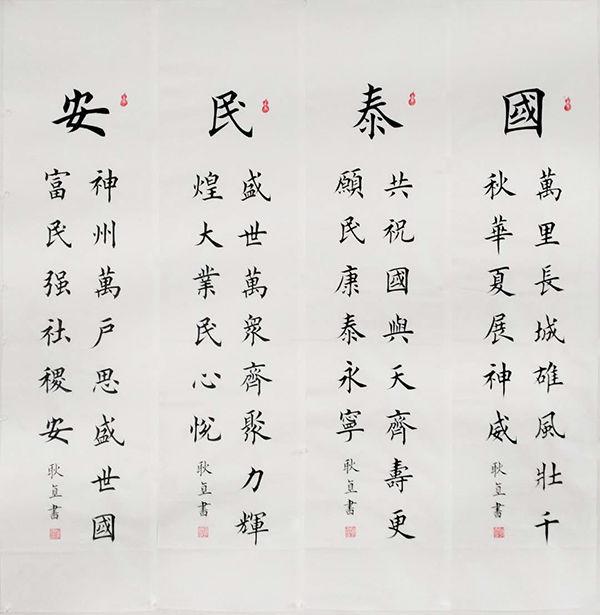 國
萬里長城雄風壯千
秋華夏展神威
耿直書
泰
共祝國與天齊壽更
願民康泰永寧
耿直書
民
盛世萬衆齊聚力輝
煌大業民心悅
耿直書
安
神州萬户思盛世國
富民强社稷安
耿直書